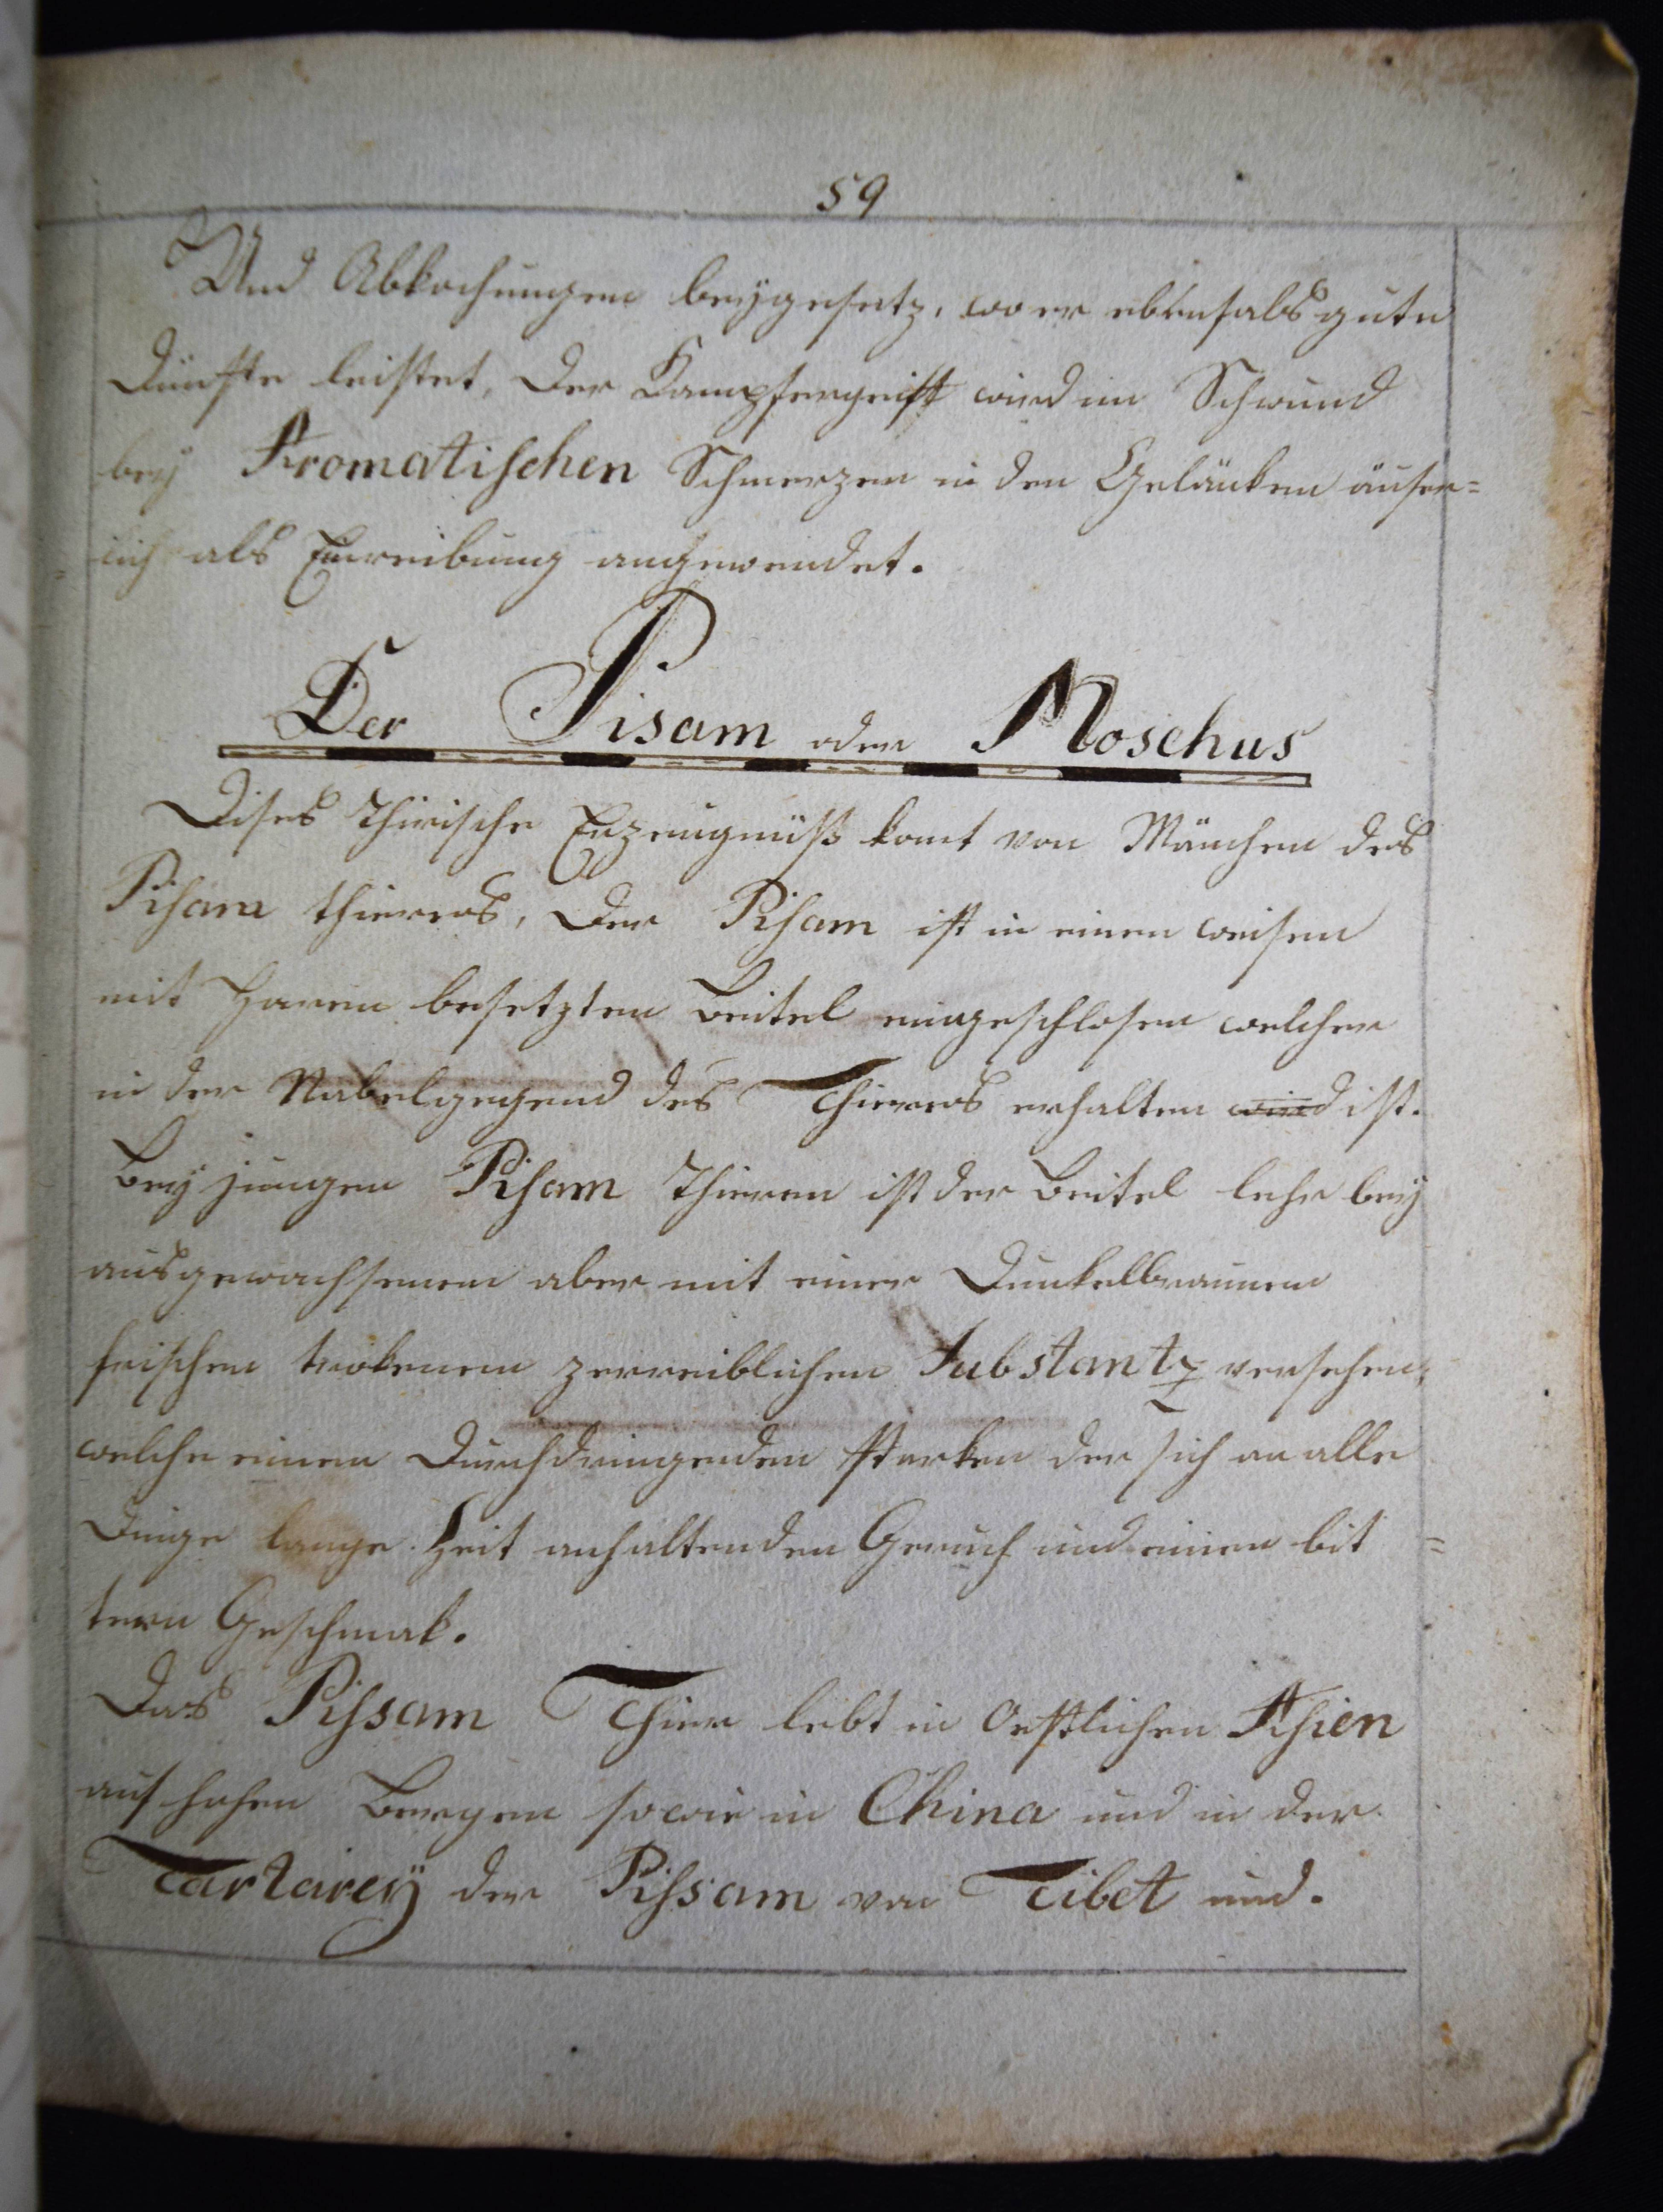 59
Und Abkochungen beygesetz, wo er ebenfals gute
Dinste leistet, Der Kampfergeist wird im Schwund
bey Aromatischen Schmerzen in den Gelänken äuser=
lich als Einreibung angewendet.
Der Pisam oder Moschus
Dises Thirische Erzeugnüß komt von Mänchen des
Pisam thieres, Der Pisam ist in einen weisen
mit Haren besetzten Beitel eingeschlosen welcher
in der Nabelgegend des Thieres erhalten wird ist.
Bey jungen Pisam Thieren ist der Beitel lehr bey
ausgewachsenen aber mit einer Dunkelbraunen
frischen trokenen zerreiblichen Substantz versehen,
welche einen Durchdringenden starken der sich an alle
Dinge lange Zeit anhaltenden Geruch und einen bit=
tern Geschmak.
Das Pissam Thier lebt in Oestlichen Asien
auf hohen Bergen sowie in China und in der
Tartarey der Pissam von Tibet und.